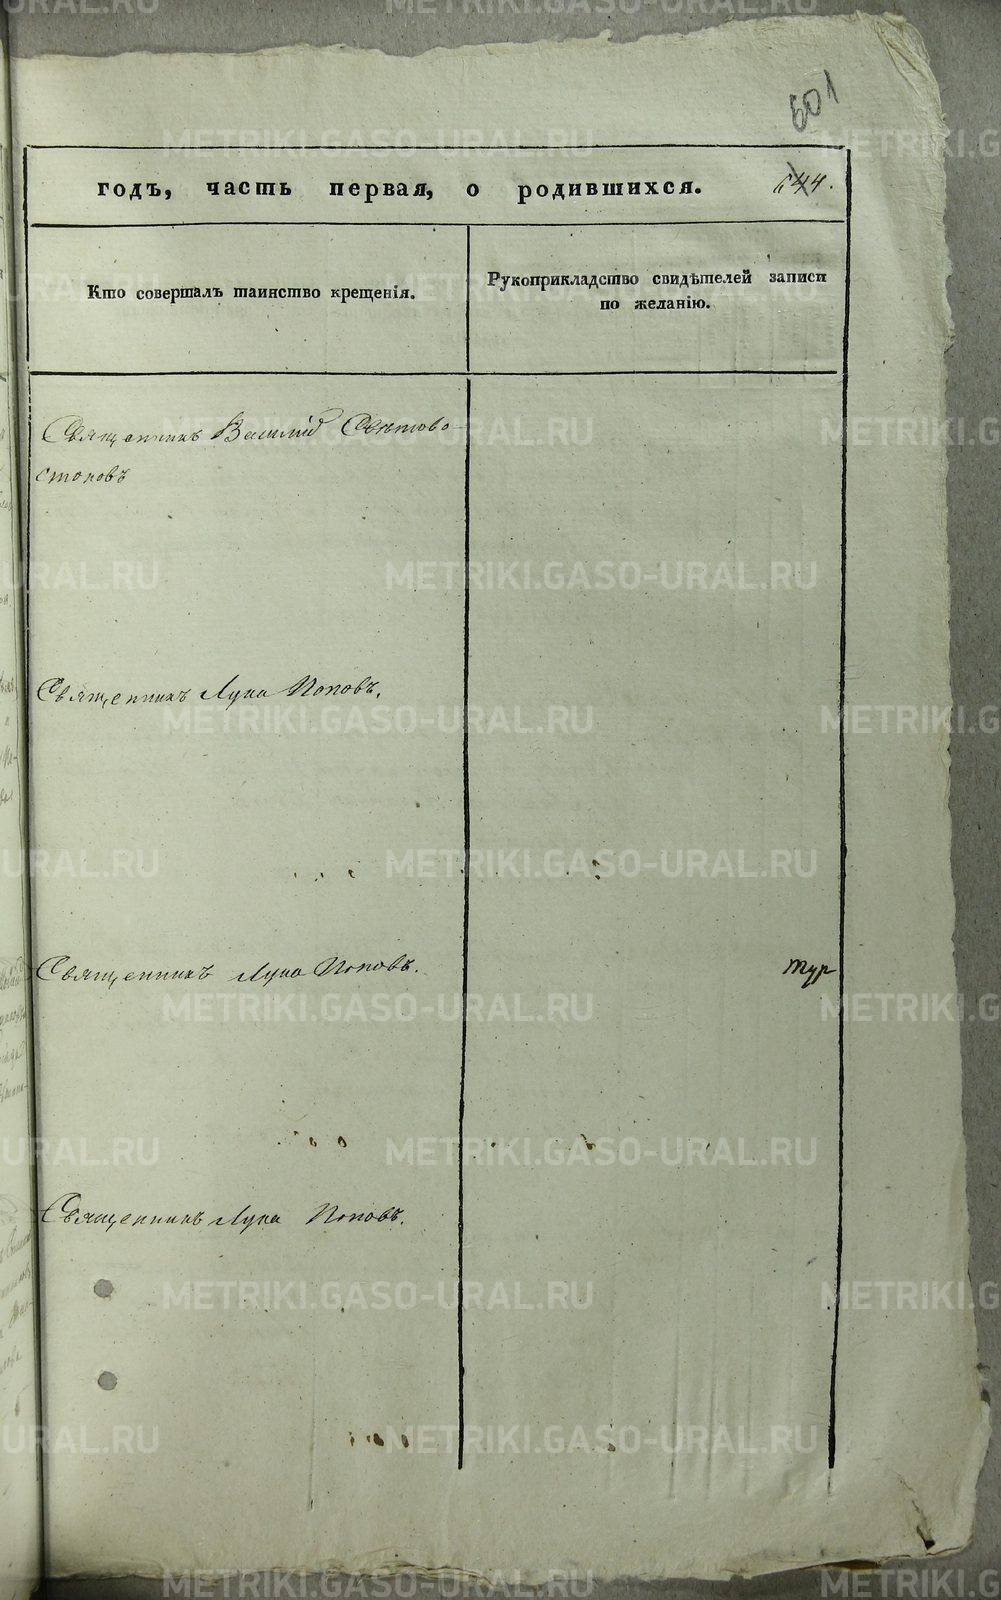 601
годъ, часть первая, о родившихся. 644.
Кто совершалъ таинство крещенія.
Рукоприкладство свидѣтелей записи
по желанію.
Священникъ Василій Свѣтово-
стоковъ
Священникъ Лука Поповъ.
Священникъ Лука Поповъ.
тур
Священникъ Лука Поповъ.
METRIKI.GASO-URAL.RU